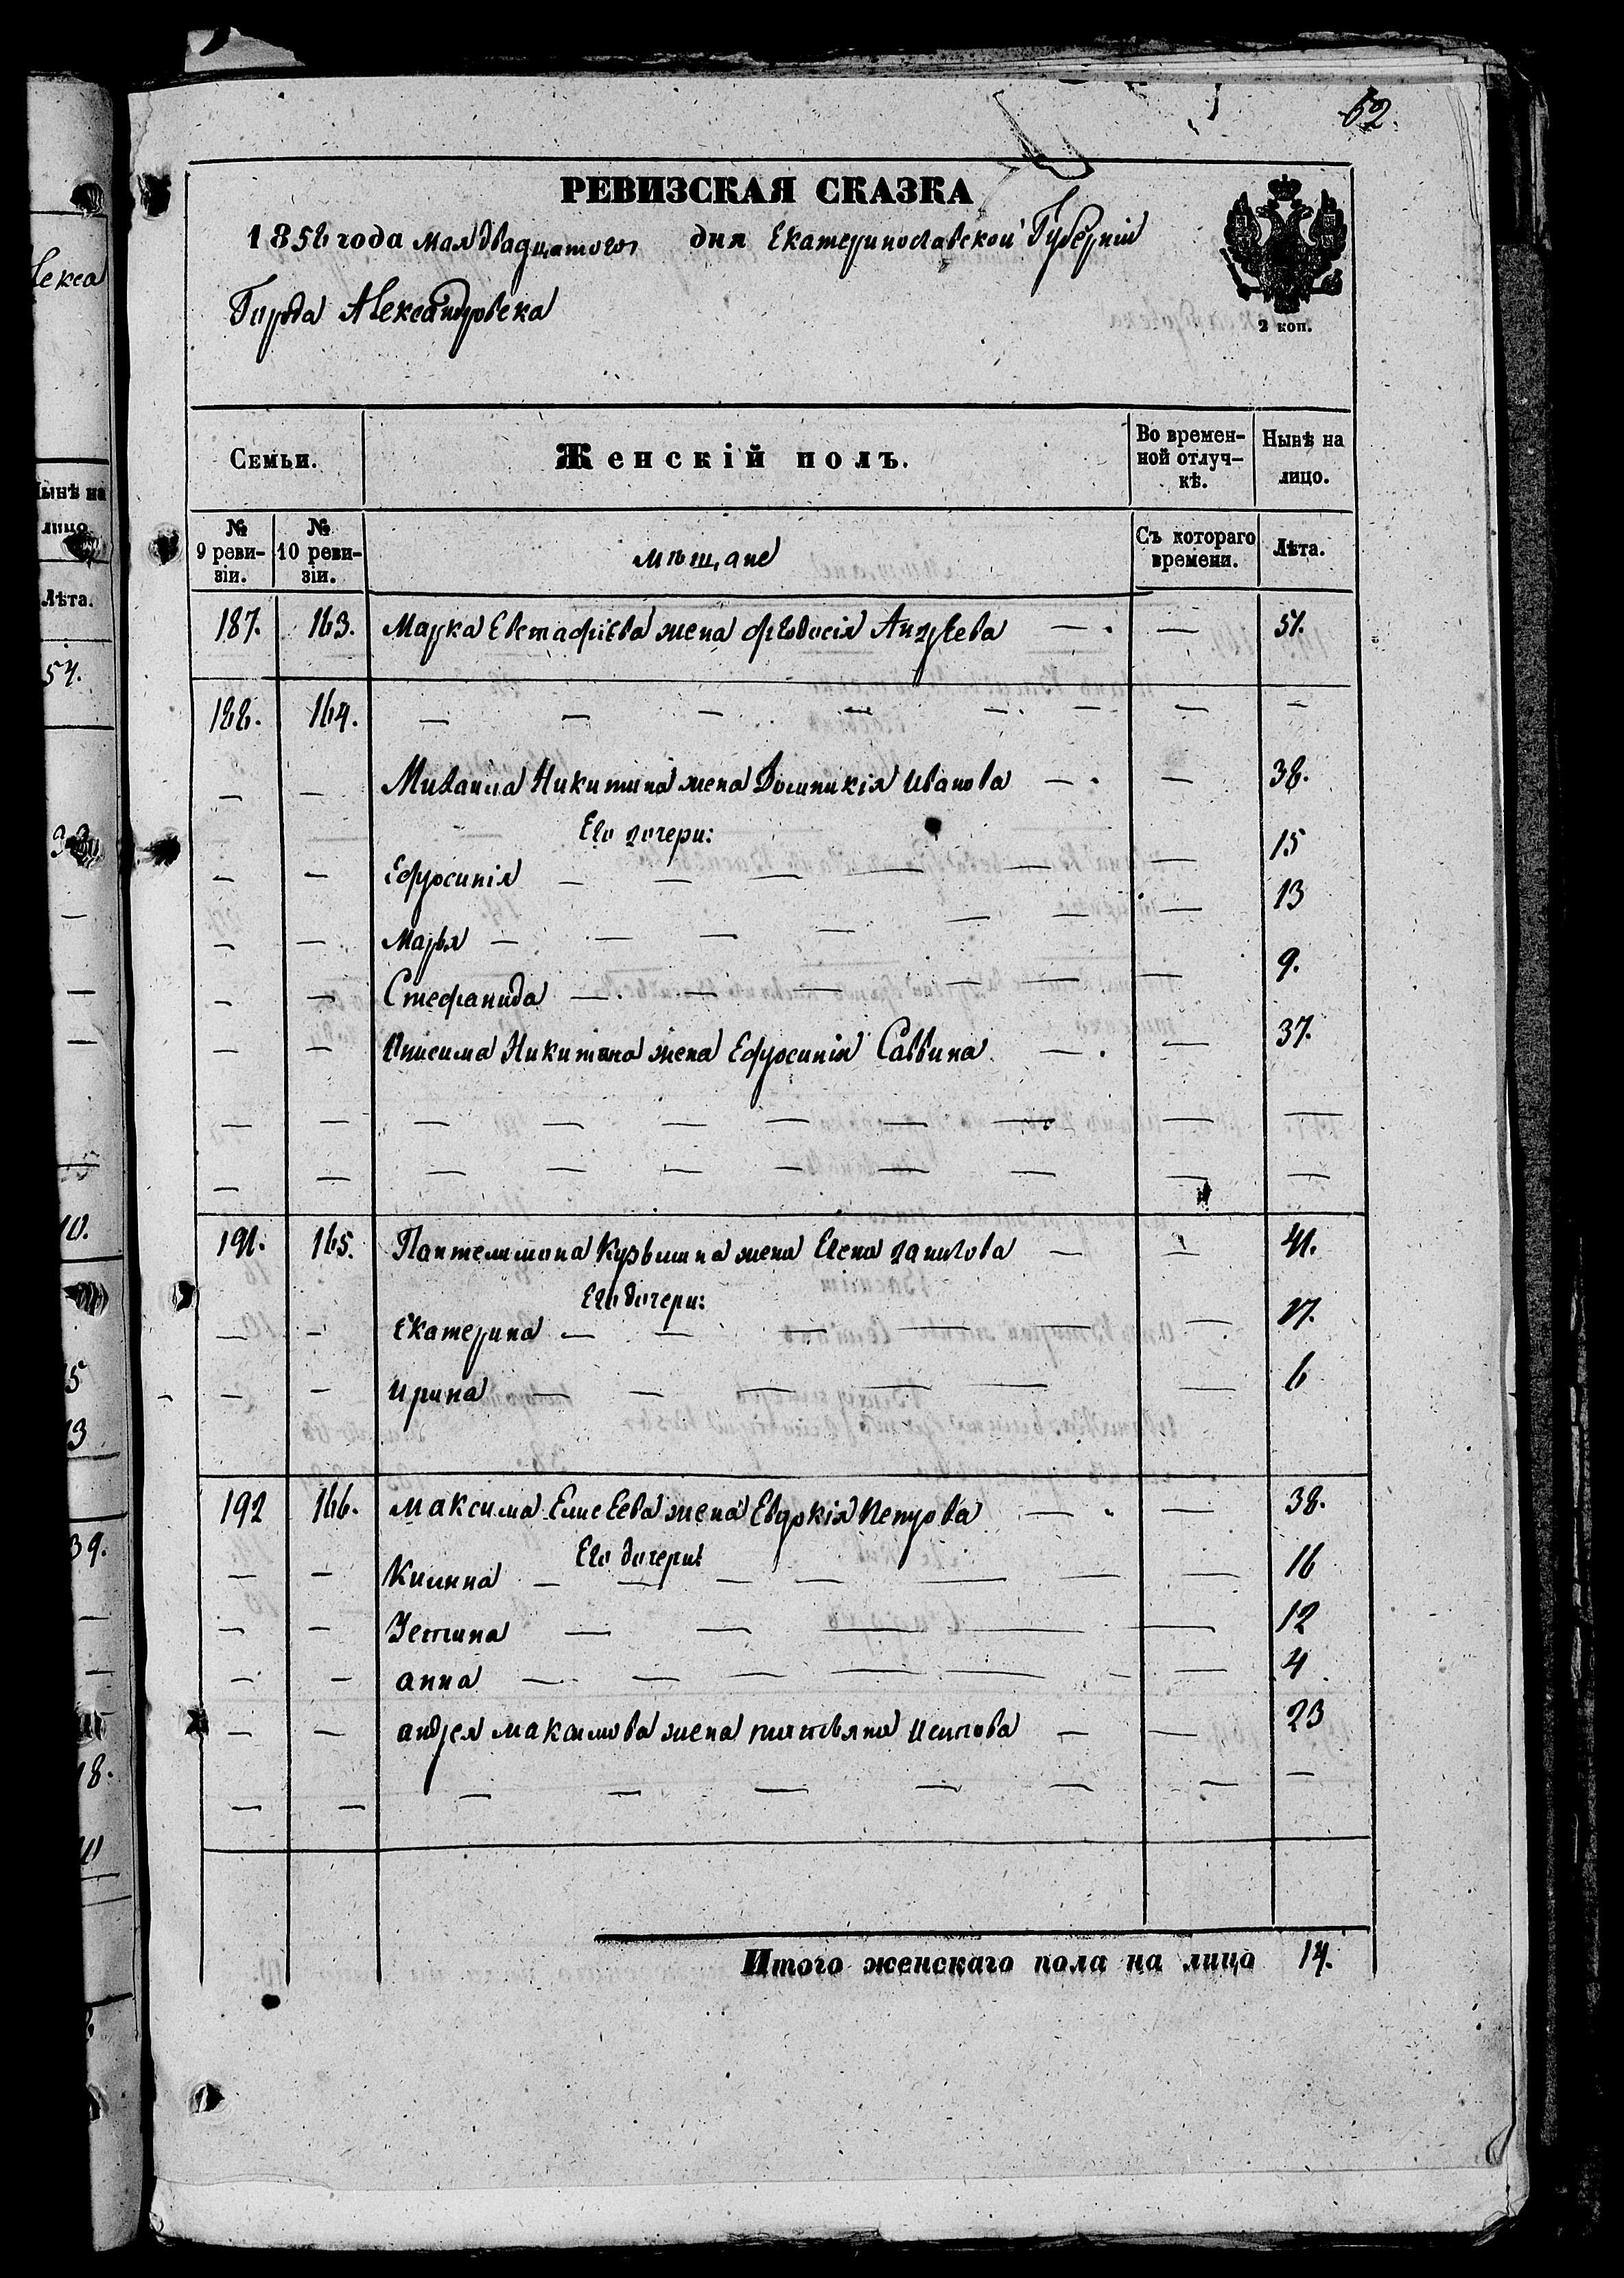 62.
РЕВИЗСКАЯ СКАЗКА
1858 года мая двадцатого дня Екатеринославской Губерніи
Города Александровска
2 коп.
Семьи.
Женскій полъ.
Во времен-
ной отлуч-
кѣ.
Нынѣ на
лицо.
№
9 реви-
зіи.
№
10 реви-
зіи.
мѣщане
Съ котораго
времени.
Лѣта.
187. 163. Марка Евстафіева жена Феодосія Андреева — — 51.
188. 164. — — — — — — — —
— — Михаила Никитина жена Домникія Иванова — — 38.
Его дочери:
— — Ефросинія — — — — — — 15
— — Марья — — — — — — — 13
— — Стефанида — — — — — — 9.
— — Онисима Никитина жена Ефросинія Саввина — — 37.
— — — — — — — — — —
— — — — — — — — — —
191. 165. Пантелимона Кузьмина жена Елена Данилова — — 41.
Его дочери:
— — Екатерина — — — — — — 17.
— — Ирина — — — — — — 6
192 166. Максима Елисеева жена Евдокія Петрова — — 38.
Его дочери:
— — Килина — — — — — — — 16
— — Устина — — — — — 12
— — анна — — — — — — — 4
— — андрея максимова жена татьяна Осипова — — 23
— — — — — — — — —
Итого женскаго пола на лицо 14.
Алекса
Нынѣ на
лицо.
Лѣта.
54.
10.
39.
18.